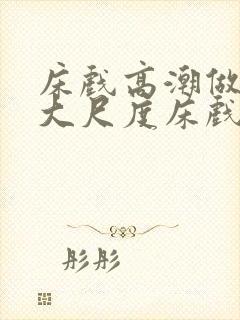 床戏高潮做
大尺度床戏
彤彤